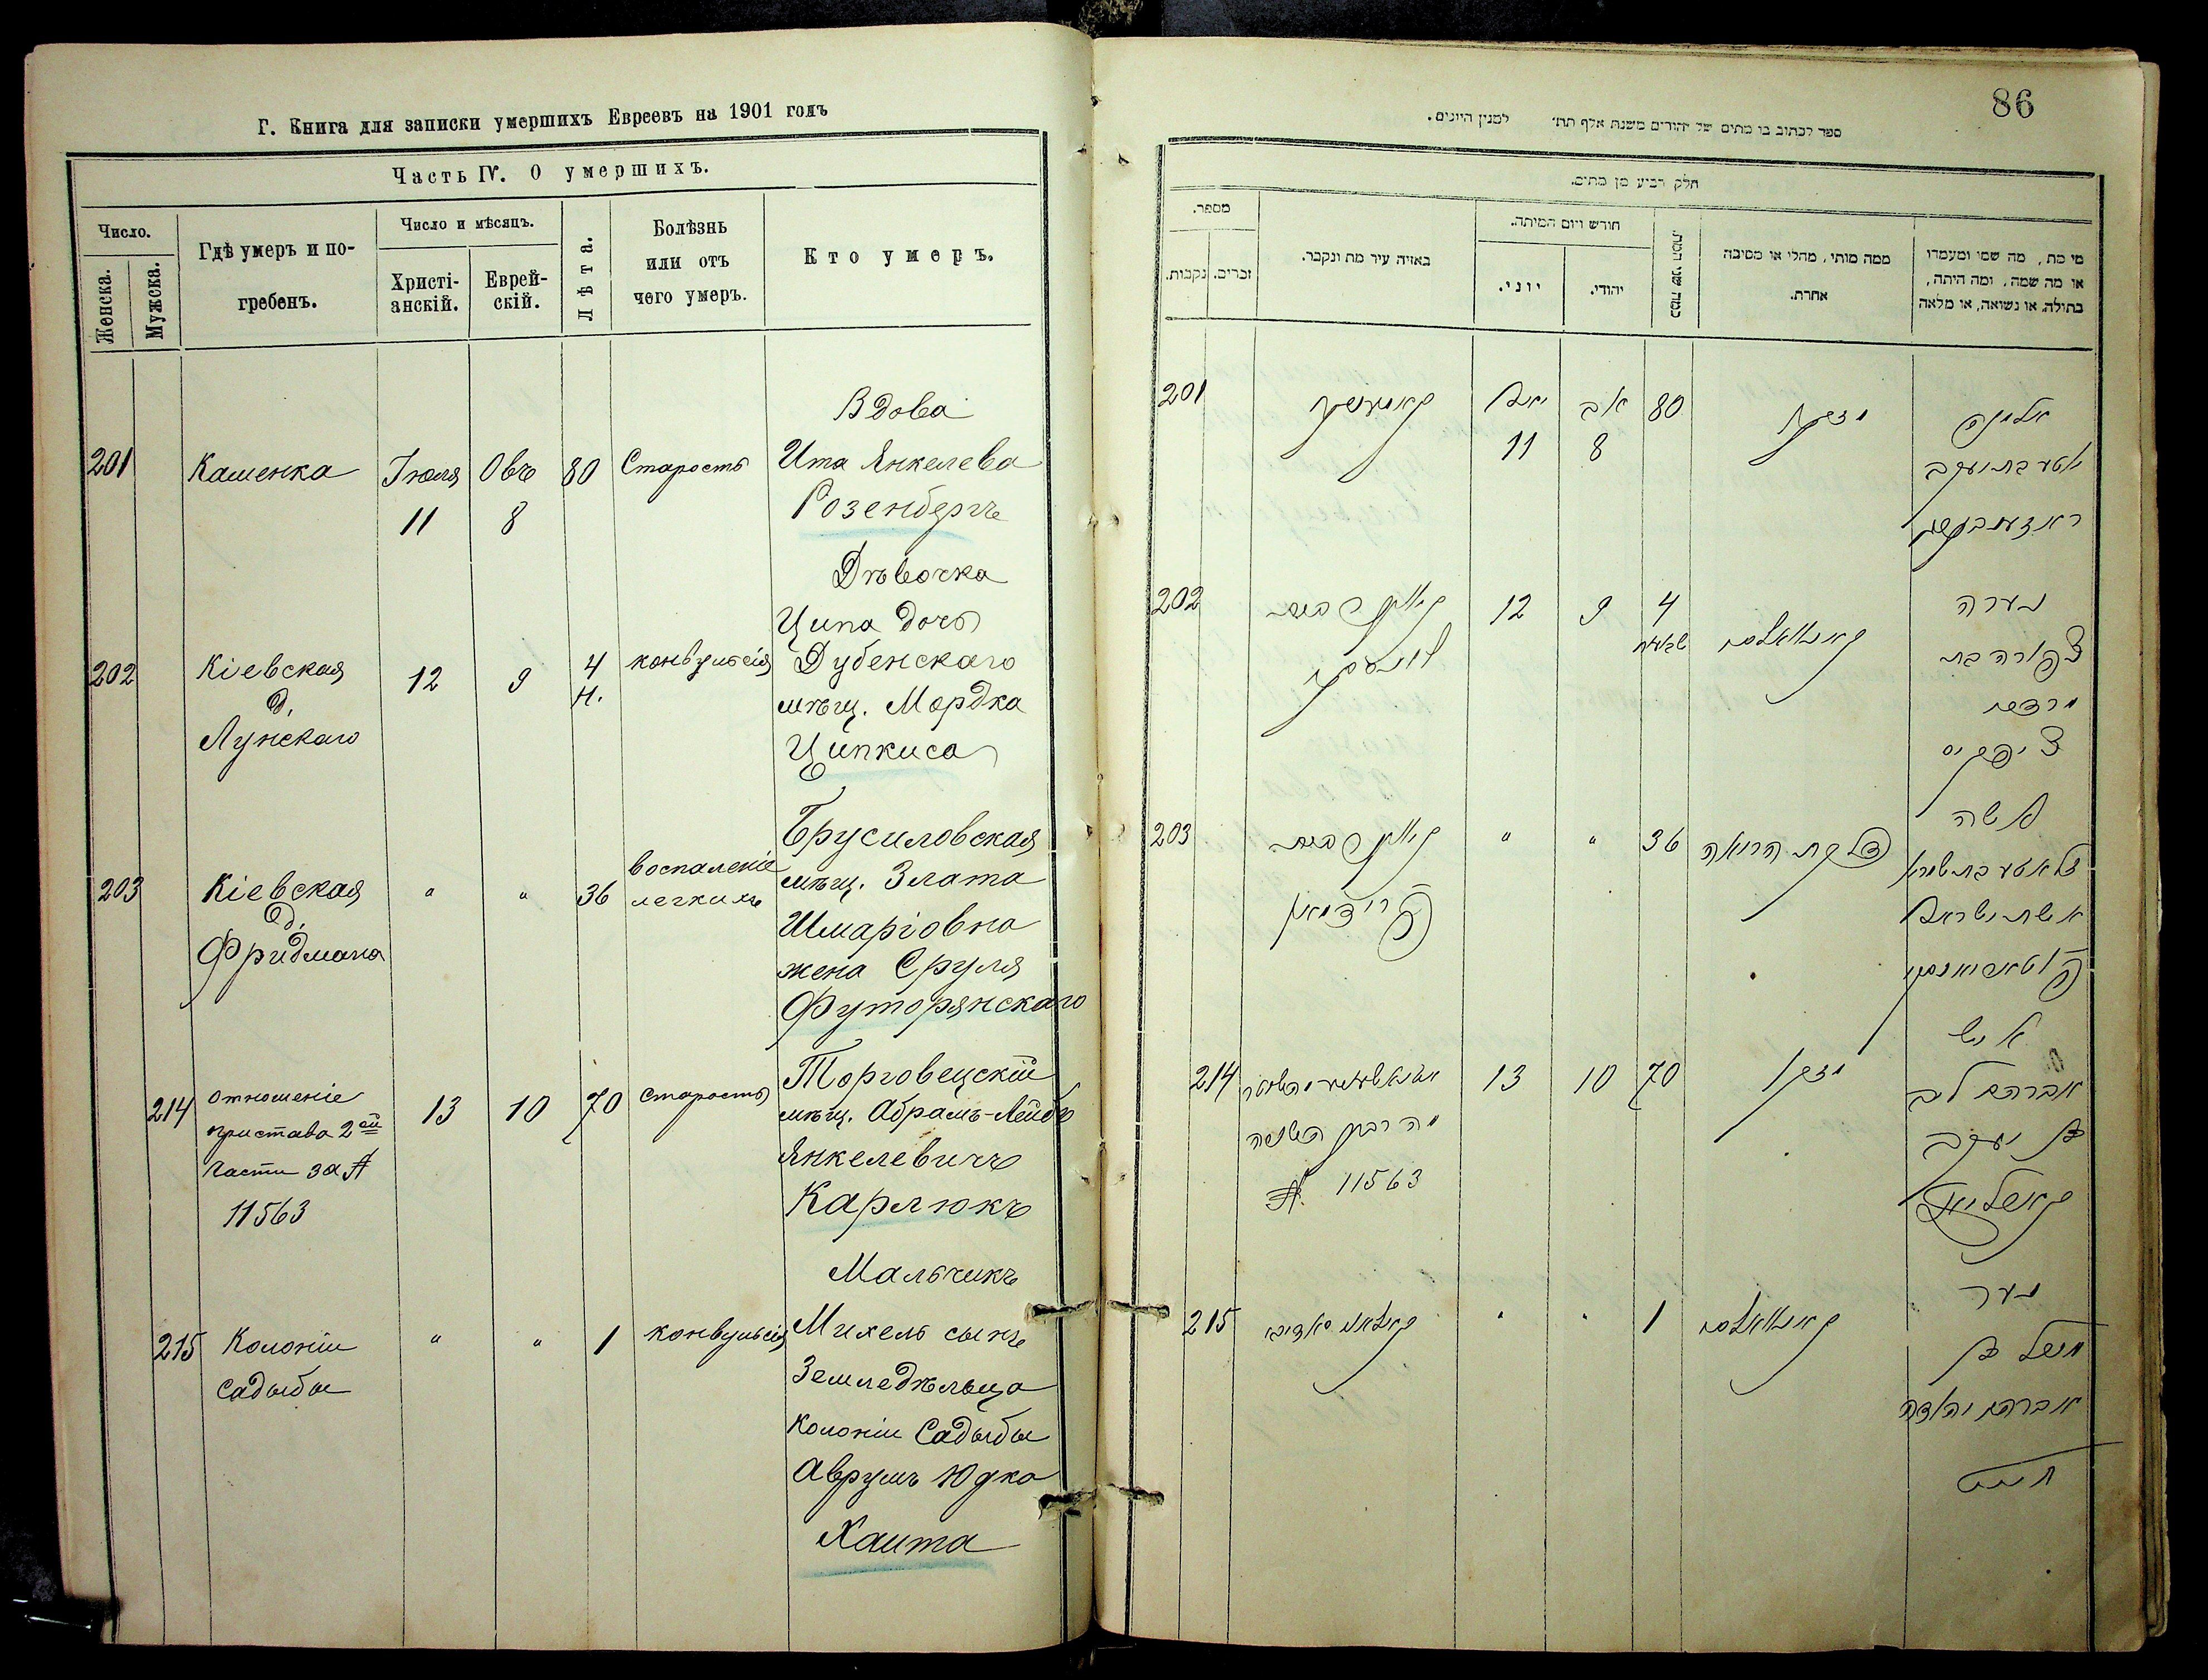 Г. Книга для записки умершихъ Евреевъ на 1901 годъ
Часть IV. О умершихъ.
Число.
Женска.
Мужска.
Гдѣ умеръ и по-
гребенъ.
Число и мѣсяцъ.
Христі-
анскій.
Еврей-
скій.
Лѣта.
Болѣзнь
или отъ
чего умеръ.
Кто умеръ.
201
Каменка
Іюля
11
Овъ
8
80
Старость
Вдова
Ита Янкелева
Розенбергъ
202
Кіевская
д.
Лунскаго
12
9
4
н.
конвульсія
Дѣвочка
Ципа дочь
Дубенскаго
мѣщ. Мордка
Ципкиса
203
Кіевская
д.
Фридмана
"
"
36
воспаленіе
легкихъ
Брусиловская
мѣщ. Злата
Шмаріовна
жена Сруля
Футорянскаго
214
отношеніе
пристава 2ой
части за №
11563
13
10
70
старость
Торговецскій
мѣщ. Абрамъ-Лейбъ
Янкелевичъ
Карлюкъ
215
Колоніи
Садыбы
"
"
1
конвульсія
Мальчикъ
Михель сынъ
Земледѣльца
колоніи Садыбы
Аврумъ Юдка
Хаита
86
ספר לכתוב בו מתים של יהודים משנת אלף תת׳ למנין היונים.
חלק רביע מן מתים.
מספר.
נקבות.
זכרים.
באיזה עיר מת ונקבר.
חודש ויום המיתה.
יוני.
יהודי.
כמה שני המת.
ממה מותי, מחלי או מסיבה
אחרת.
מי מת, מה שמו ומעמדו
או מה שמה, ומה היתה,
בתולה, או נשואה, או מלאה
201
קאמענקע
יולי
11
אב
8
80
זקנה
אלמנה
איטע בת יעקב
ראזענבערג
202
12
9
4
נערה
צפורה בת
מרדכי
ציפקיס
203
"
"
36
דלקת הריאה
אשה
זלאטע בת שמריה
אשת ישראל
214
№ 11563
13
10
70
זקן
איש
אברהם ליב
בן יעקב
קארליוק
215
"
"
1
נער
מיכל בן
אברהם יהודה
חייט